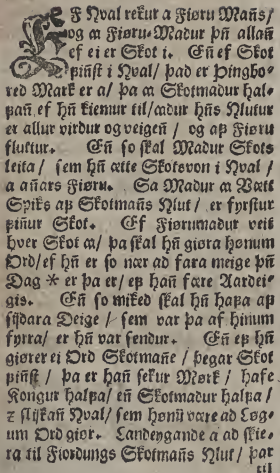 EF Hval rekur a Fiøru Mañs/
og æ Fiøru-Madur þñ allañ
ef ei er Skot i. Eñ ef Skot
piñst i Hval/ þad er Þingbo-
red Mark er a/ þa æ Skotmadur hal-
pañ ef hñ kiemur til/ædur hñs Hlutur
er allur virdur og veigeñ / og ap Fiøru
fluttur. Eñ so skal Madur Skots
leita / sem hñ ætte Skotsvon i Hval /
a añars Fiøru. Sa Madur æ Vætt
Spiks ap Skotmañs Hlut / er fyrstur
piñur Skot. Ef Fiørumadur veit
hver Skot æ/ þa skal hñ giøra honum
Ord/ef hñ er so nær ad fara meige þñ
Dag * er þa er/ ep hañ fære Aardei-
gis. Eñ so miked skal hñ hapa ap
sijdara Deige / sem var þa af hinum
fyrra/ er hñ var sendur. Eñ ep hñ
giører ei Ord Skotmañe / þegar Skot
piñst / þa er hañ sekur Mørk / hafe
Kongur halpa/ eñ Skotmadur halpa /
z slijkañ Hval/ sem hønū være ad Løg-
um Ord giør. Landeygande a ad skie-
ra til Fiordungs Skotmañs Hlut / þar